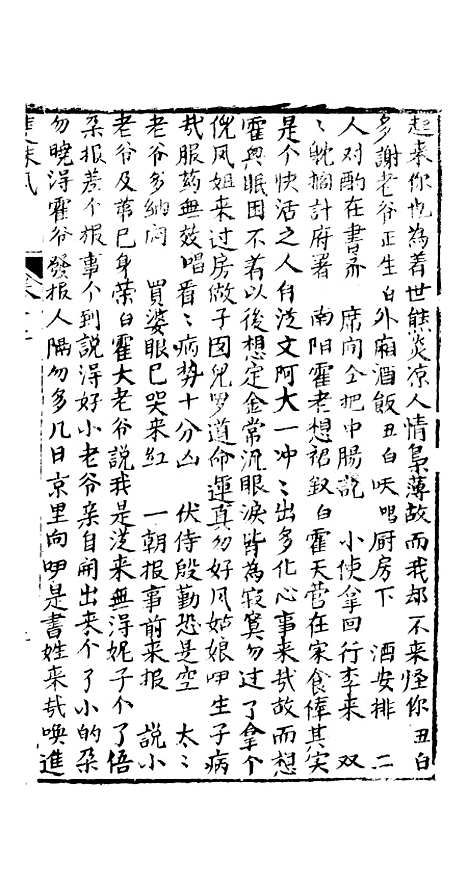 起来你也為着世態炎凉人情梟薄故而我却不来怪你丑白
多謝老爷正生白外廂酒飯丑白吷唱厨房下　酒安排　二
人对酌在書斋　席间仝把中腸說　小使拿回行李来　双
〻躭擱計府署　南阳霍老想裙釵白霍天荅在家食俸其实
是个快活之人自従文阿大一冲〻出多化心事来哉故而想
霍與眠困不着以後想定金常汍眼淚皆為寂寞勿过了拿个
侊凤姐来过房做子因兒罗道命運真勿好凤姑娘吚生子病
哉服葯無效唱看〻病势十分凶　伏侍殷勤恐是空　太〻
老爷多納闷　買婆眼巴哭来紅　一朝报事前来报　說小
老爷及第已身荣白霍大老爷說我是従来無淂妮子个了悟
朶报差个报事个到說淂好小老爷亲自開出来个了小的朶
勿曉淂霍爷發报人隔勿多几日京里向吚是書姓来哉喚進